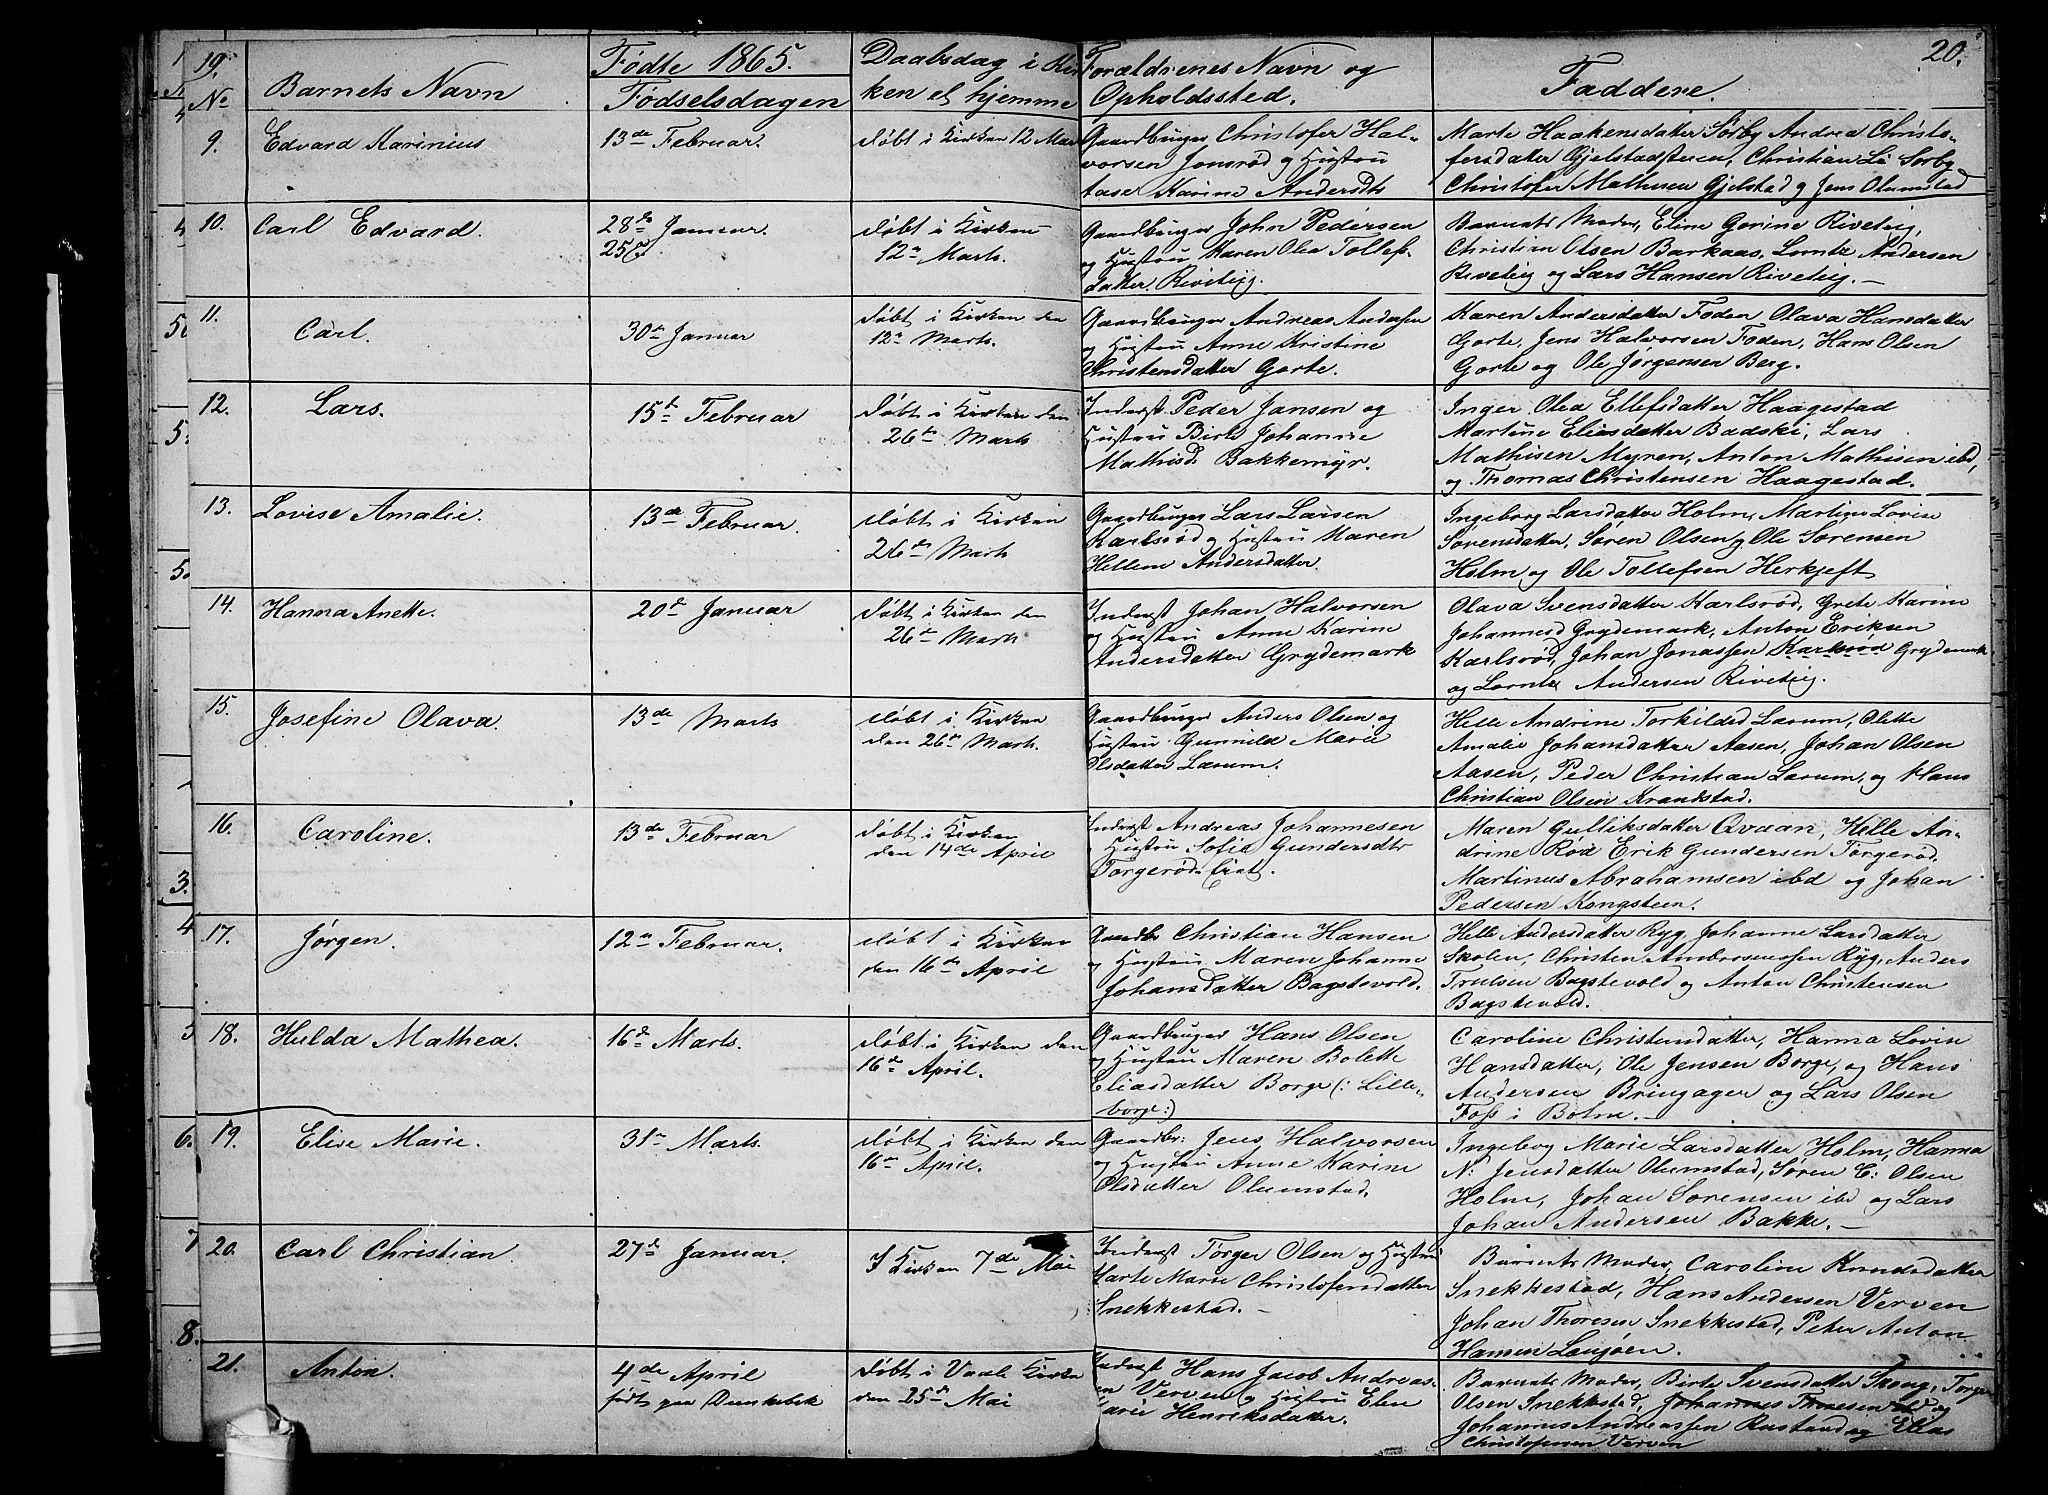 19.
20.
No
Barnets Navn
Fødte 1865.
Fødselsdagen
Daabsdag i Kir
ken el hjemme
Forældrenes Navn og
Opholdssted.
Faddere.
9. Edvard Karinius
13de Februar.
døbt i Kirken 12 Mar
Gaardbruger Christofer Hal-
vorsen Jonsrød og Hustru
Karine Andersdtr
Marte Haakensdatter Sørby Andrea Christo-
fersdatter Gjelstadsteen, Christian Li Sørby
Christofer Mathisen Gjelstad og Jens Olumstad
10. Carl Edvard.
28de Januar.
25
døbt i Kirken
12te Marts.
Gaardbruger John Pedersen
og Hustru Maren Olea Tollefs-
datter Riveteig.
Barnets Moder, Eline Gorine Riveteig,
Christian Olsen Barkaas, Lorntz Andersen
Riveteig og Lars Hansen Riveteig.
11. Carl.
30te Januar
døbt i Kirken den
12te Marts.
Gaardbruger Andreas Andersen
og Hustru Anne Kristine
Christensdatter Gorte.
Karen Andersdatter Foden Olava Hansdatter
Gorte, Jens Halvorsen Foden, Hans Olsen
Gorte og Ole Jørgensen Berg.
12. Lars.
15de Februar
døbt i Kirken den
26te Marts
Inderst Peder Jansen og
Hustru Birte Johanne
Mathisd. Bakkemyr.
Inger Olea Ellefsdatter Haagestad
Martine Eliasdatter Badski, Lars
Mathisen Myren, Anton Mathisen ibd,
og Thomas Christensen Haagestad.
13. Lovise Amalie.
13de Februar.
døbt i Kirken
26de Marts
Gaardbruger Lars Larsen
Karlsrød og Hustru Maren
Hellem Andersdatter.
Ingeborg Larsdatter Holm, Martine Lovise
Sørensdatter, Søren Olsen og Ole Sørensen
Holm og Ole Tollefsen Herkjeft
14. Hanna Anette.
20de Januar
døbt i Kirken den
26te Marts
Inderst Johan Halvorsen
og Hustru Anne Karine
Andersdatter Grydemark
Olava Svensdatter Karlsrød, Grete Karine
Johannesd Grydemark, Anton Eriksen
Karlsrød, Johan Jonassen Karlsrød Grydemark
og Lorntz Andersen Riveteig.
15. Josefine Olava.
13de Marts
døbt i Kirken
den 26te Marts.
Gaardbruger Anders Olsen og
Hustru Gunnild Marie
Olsdatter Lærum.
Helle Andrine Torkildsd Lærum, Olette
Amalie Johansdatter Aasen, Johan Olsen
Aasen, Peder Christian Lærum, og Hans
Christian Olsen Krandstad.
16. Caroline.
13de Februar
døbt i Kirken
den 14de April
Inderst Andreas Johannesen
Hustru Sofie Gundersdtr
Torgerød
Maren Gulliksdatter Qvaan, Helle An-
drine Rød Erik Gundersen Torgerød.
Martinus Abrahamsen ibd og Johan
Pedersen Kongsteen.
17. Jørgen.
12te Februar.
døbt i Kirken
den 16de April
Gaardbr Christian Hansen
og Hustru Maren Johanne
Johansdatter Bagstevold.
Helle Andersdatter Ryg, Johanne Larsdatter
Skolen, Christen Ambrosiussen Ryg, Anders
Truelsen Bagstevold og Anton Christensen
Bagstevold.
18. Hulda Mathea.
16de Marts.
døbt i Kirken den
16de April.
Gaardbruger Hans Olsen
og Hustru Maren Bolette
Eliasdatter Borge (: Lille-
borge:)
Caroline Christensdatter, Hanna Lovise
Hansdatter, Ole Jensen Borge, og Hans
Andersen Bringager og Lars Olsen
Foss i Botne.
19. Elise Marie.
31te Marts.
døbt i Kirken den
16de April.
Gaardbr: Jens Halvorsen
og Hustru Anne Karine
Olsdatter Olumstad.
Ingeborg Marie Larsdatter Holm, Hanna
N: Jensdatter Olumstad, Søren E: Olsen
Holm, Johan Sørensen ibd og Lars
Johan Andersen Bakke.
20. Carl Christian
27de Januar.
I Kirken 7de Mai
Inderst Torger Olsen og Hustru
Marte Marie Christofersdatter
Snekkestad.
Barnets Moder, Caroline Knudsdatter
Snekkestad, Hans Andersen Verven
Johan Thoresen Snekkestad, Peter Anton
Hansen Langøen.
21. Anton.
4de April
født paa Dunkebek
døbt i Vaale Kirke
den 25de Mai
Inderst Hans Jacob Andreas-
en Verven og Hustru Elen
Marie Henriksdatter.
Barnets Moder, Birte Svensdatter Skong, Torger
Olsen Snekkestad, Johannes Thoresen ibd og
Johannes Andreassen Rustand og Elias
Christofersen Verven